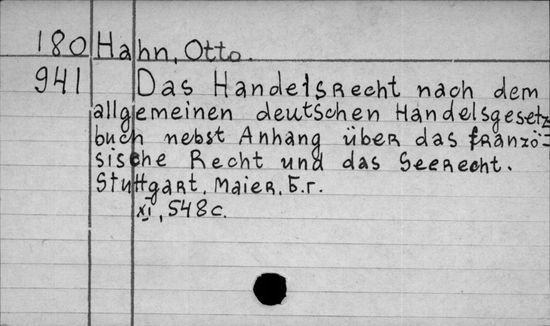 180 Hahn, Otto.
941 Das Handelsrecht nach dem
allgemeinen deutschen Handelsgesetz
buch nebst Anhang über das franzö=
sische Recht und das Seerecht.
Stuttgart, Maier, б.г.
XI, 548 с.